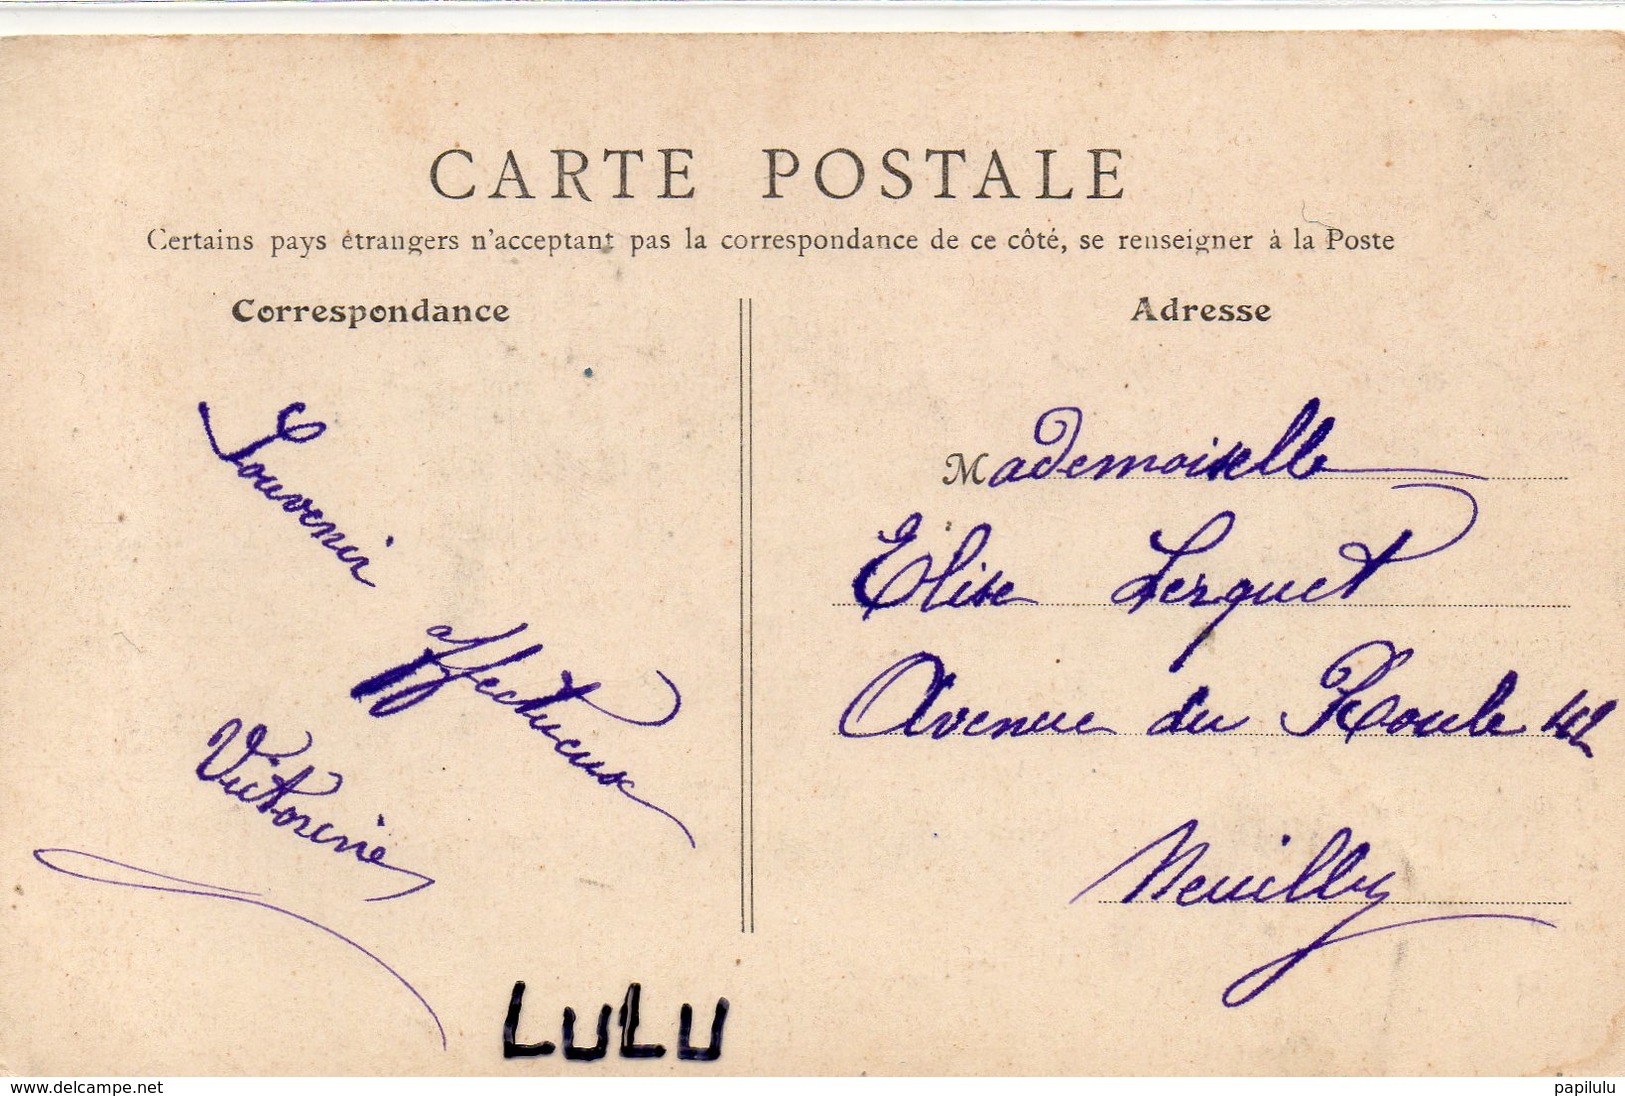 CARTE POSTALE
Certains pays étrangers n'acceptant pas la correspondance de ce côté, se renseigner à la Poste
Correspondance
Souvenir
affectueux
Victorine
Adresse
Mademoiselle
Elise Lerquet
Avenue du Roule 42
Neuilly
LULU
www.delcampe.net
papilulu